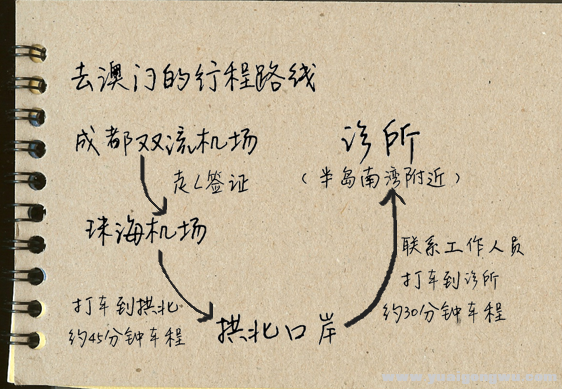 去澳门的行程路线
成都双流机场
走L签证
珠海机场
打车到拱北
约45分钟车程
拱北口岸
联系工作人员
打车到诊所
约30分钟车程
诊所
(半岛南湾附近)